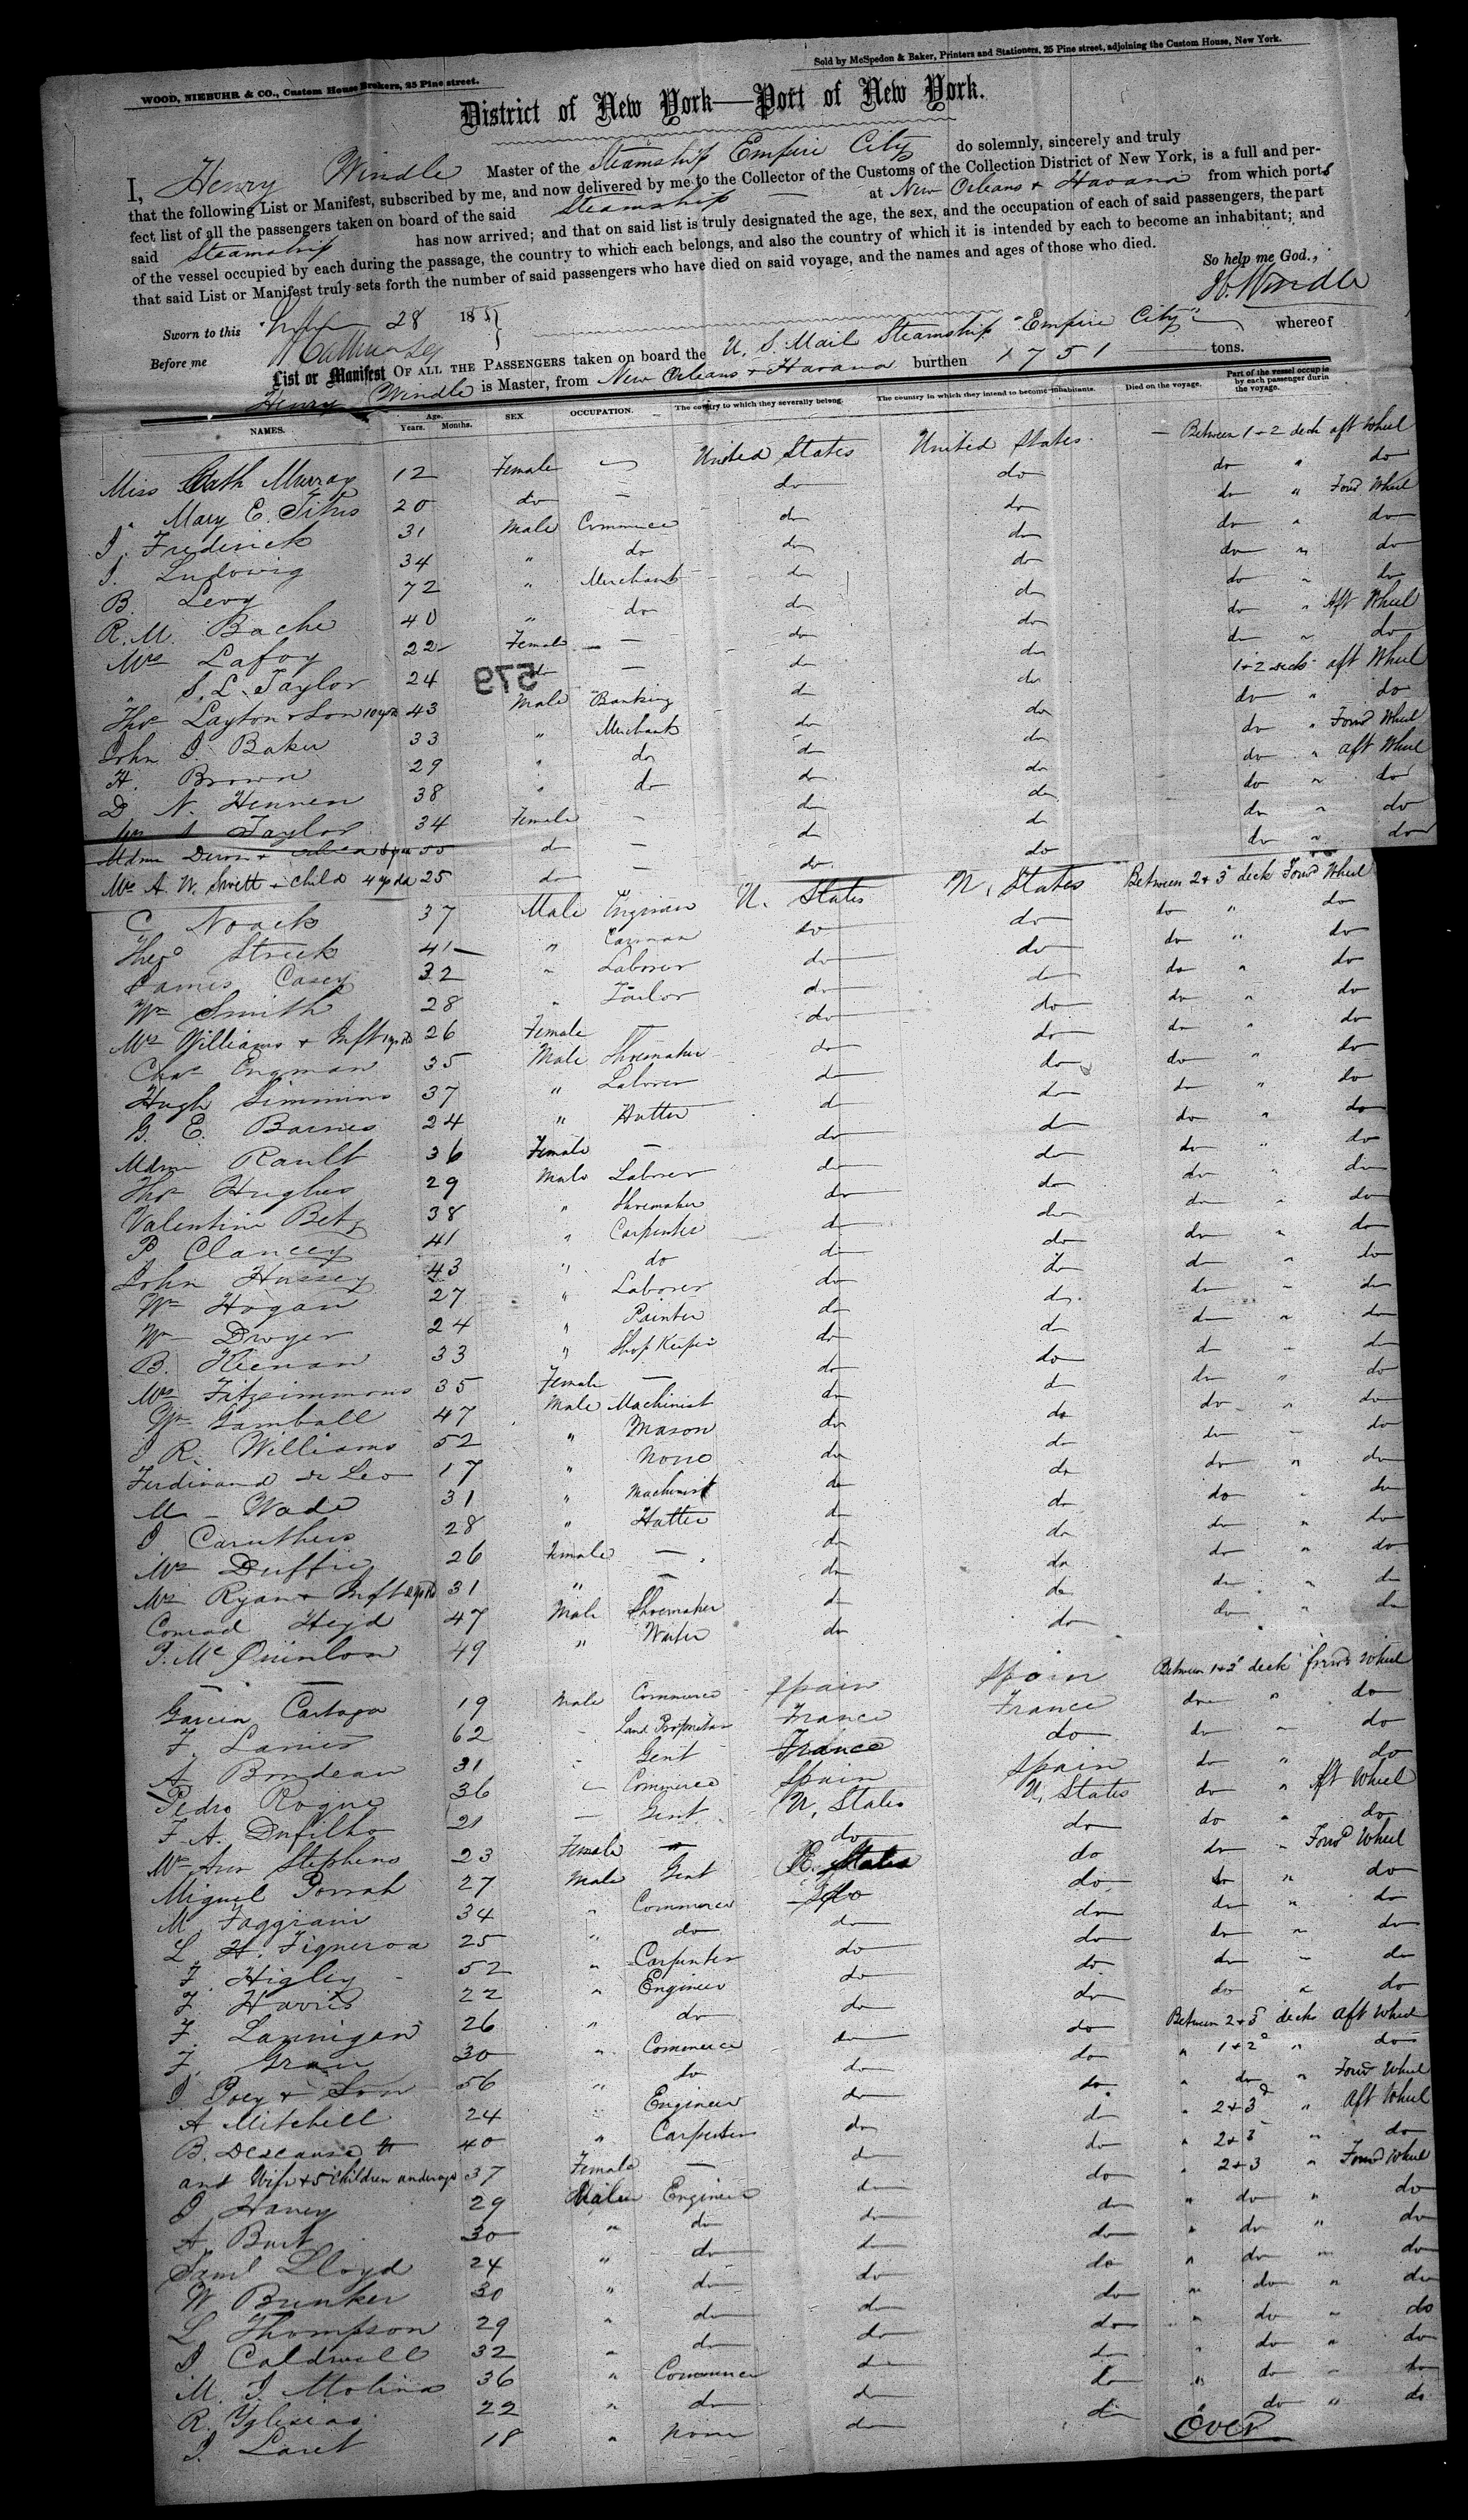 WOOD, NIEBUHR & CO., Custom House Brokers, 25 Pine street.
Sold by McSpedon & Baker, Printers and Stationers, 25 Pine street, adjoining the Custom House, New York.
District of New York—Port of New York.
I, Henry Windle Master of the Steamship Empire City do solemnly, sincerely and truly
that the following List or Manifest, subscribed by me, and now delivered by me to the Collector of the Customs of the Collection District of New York, is a full and per-
fect list of all the passengers taken on board of the said Steamship at New Orleans + Havana from which ports
said Steamship has now arrived; and that on said list is truly designated the age, the sex, and the occupation of each of said passengers, the part
of the vessel occupied by each during the passage, the country to which each belongs, and also the country of which it is intended by each to become an inhabitant; and
that said List or Manifest truly sets forth the number of said passengers who have died on said voyage, and the names and ages of those who died.
So help me God.,
H. Windle
Sworn to this 28 185
Before me
List or Manifest OF ALL THE PASSENGERS taken on board the U. S. Mail Steamship "Empire City" whereof
Henry Windle is Master, from New Orleans + Havana burthen 1751 tons.
NAMES. Age. Years. Months. SEX. OCCUPATION. The country to which they severally belong. The country in which they intend to become inhabitants. Died on the voyage. Part of the vessel occupie by each passenger durin the voyage.
Miss Cath Murray 12 Female — United States United States — Between 1+2 deck aft Wheel
" Mary E. Titus 20 do — do do do " do
J. Frederick 31 Male Commerce do do do " Forwd Wheel
J. Ludowig 34 " do do do do " do
B. Levy 72 " Merchant do do do " do
R. M. Bache 40 " do do do do " do
Mrs Lafoy 22 Female — do do do " Aft Wheel
" S. L. Taylor 24 do — do do do " do
579
Thos Layton & Son 10 yrs 43 Male Banking do do 1+2 decks aft Wheel
John J. Baker 33 " Merchant do do do " do
H. Brown 29 " do do do do " Forwd Wheel
D. N. Hennen 38 " do do do do " aft Wheel
Taylor 34 Female — do do do " do
Mdme 55 do — do do do " do
Mrs A. W. Swett + child 4 y old 25 do — do do do " do
C. Noack 37 Male U. States U. States Between 2+3d deck Forwd Wheel
Theo Streck 41 " Carman do do do " do
James Casey 32 " Laborer do do do " do
Wm Smith 28 " Tailor do do do " do
Mrs Williams + Inft 26 Female do do do " do
Chas Engman 35 Male Shoemaker do do do " do
Hugh Simmins 37 " Laborer do do do " do
G. E. Barnes 24 " Hatter do do do " do
Mdme Rault 36 Female — do do do " do
Thos Hughes 29 Male Laborer do do do " do
Valentine Betz 38 " Shoemaker do do do " do
P Clancey 41 " Carpenter do do do " do
John Hussey 43 " do do do do " do
Wm Hogan 27 " Laborer do do do " do
Wm Dwyer 24 " Painter do do do " do
B. Keenan 33 " Shop Keeper do do do " do
Mrs Fitzsimmons 35 Female — do do do " do
Gamball 47 Male Machinist do do do " do
J R. Williams 52 " Mason do do do " do
Ferdinand de Leo 17 " None do do do " do
M — Wade 31 " Machinist do do do " do
J Caruthers 28 " Hatter do do do " do
Mrs Duffie 26 Female — do do do " do
Mrs Ryan + Inft 31 " — do do do " do
Conrad Heyd 47 Male Shoemaker do do do " do
P. McQuinlon 49 " Waiter do do do " do
Garcia Cartaga 19 Male Commerce Spain Spain Between 1+2d deck forwd Wheel
F. Lanier 62 Land Proprietor France France do " do
A. Bondean 31 Gent France do do " do
Pedro Roque 36 Commerce Spain Spain do " do
F. A. Dufilho 21 — Gent U. States U. States do " Aft Wheel
Mrs Ann Stephens 23 Female — do do do " do
Miguel Porrah 27 Male Gent U. States do do " Forwd Wheel
M. Faggiani 34 " Commerce do do do " do
L. H. Figueroa 25 " do do do do " do
F. Higley 52 " Carpenter do do do " do
F. Harris 22 " Engineer do do do " do
F. Lannigan 26 " do do do do " do
F. Grau 30 " Commerce do do Between 2+3d decks aft Wheel
J Poey + Son 56 " do do do " 1+2d " do
A Mitchell 24 " Engineer do do " do " Forwd Wheel
B. 40 " Carpenter do do " 2+3d " Aft Wheel
and Wife + 5 Children under age 37 Female — do do " 2+3 " do
J Haney 29 Male Engineer do do " 2+3 " Forwd Wheel
A. Burt 30 " do do do " do " do
Saml Lloyd 24 " do do do " do " do
W Brunker 30 " do do do " do " do
L Thompson 29 " do do do " do " do
J Caldwell 32 " do do do " do " do
M. J. Molina 36 " Commerce do do " do " do
R. Yglesias 22 " do do do " do " do
J. Laret 18 " None do do " do " do
Over